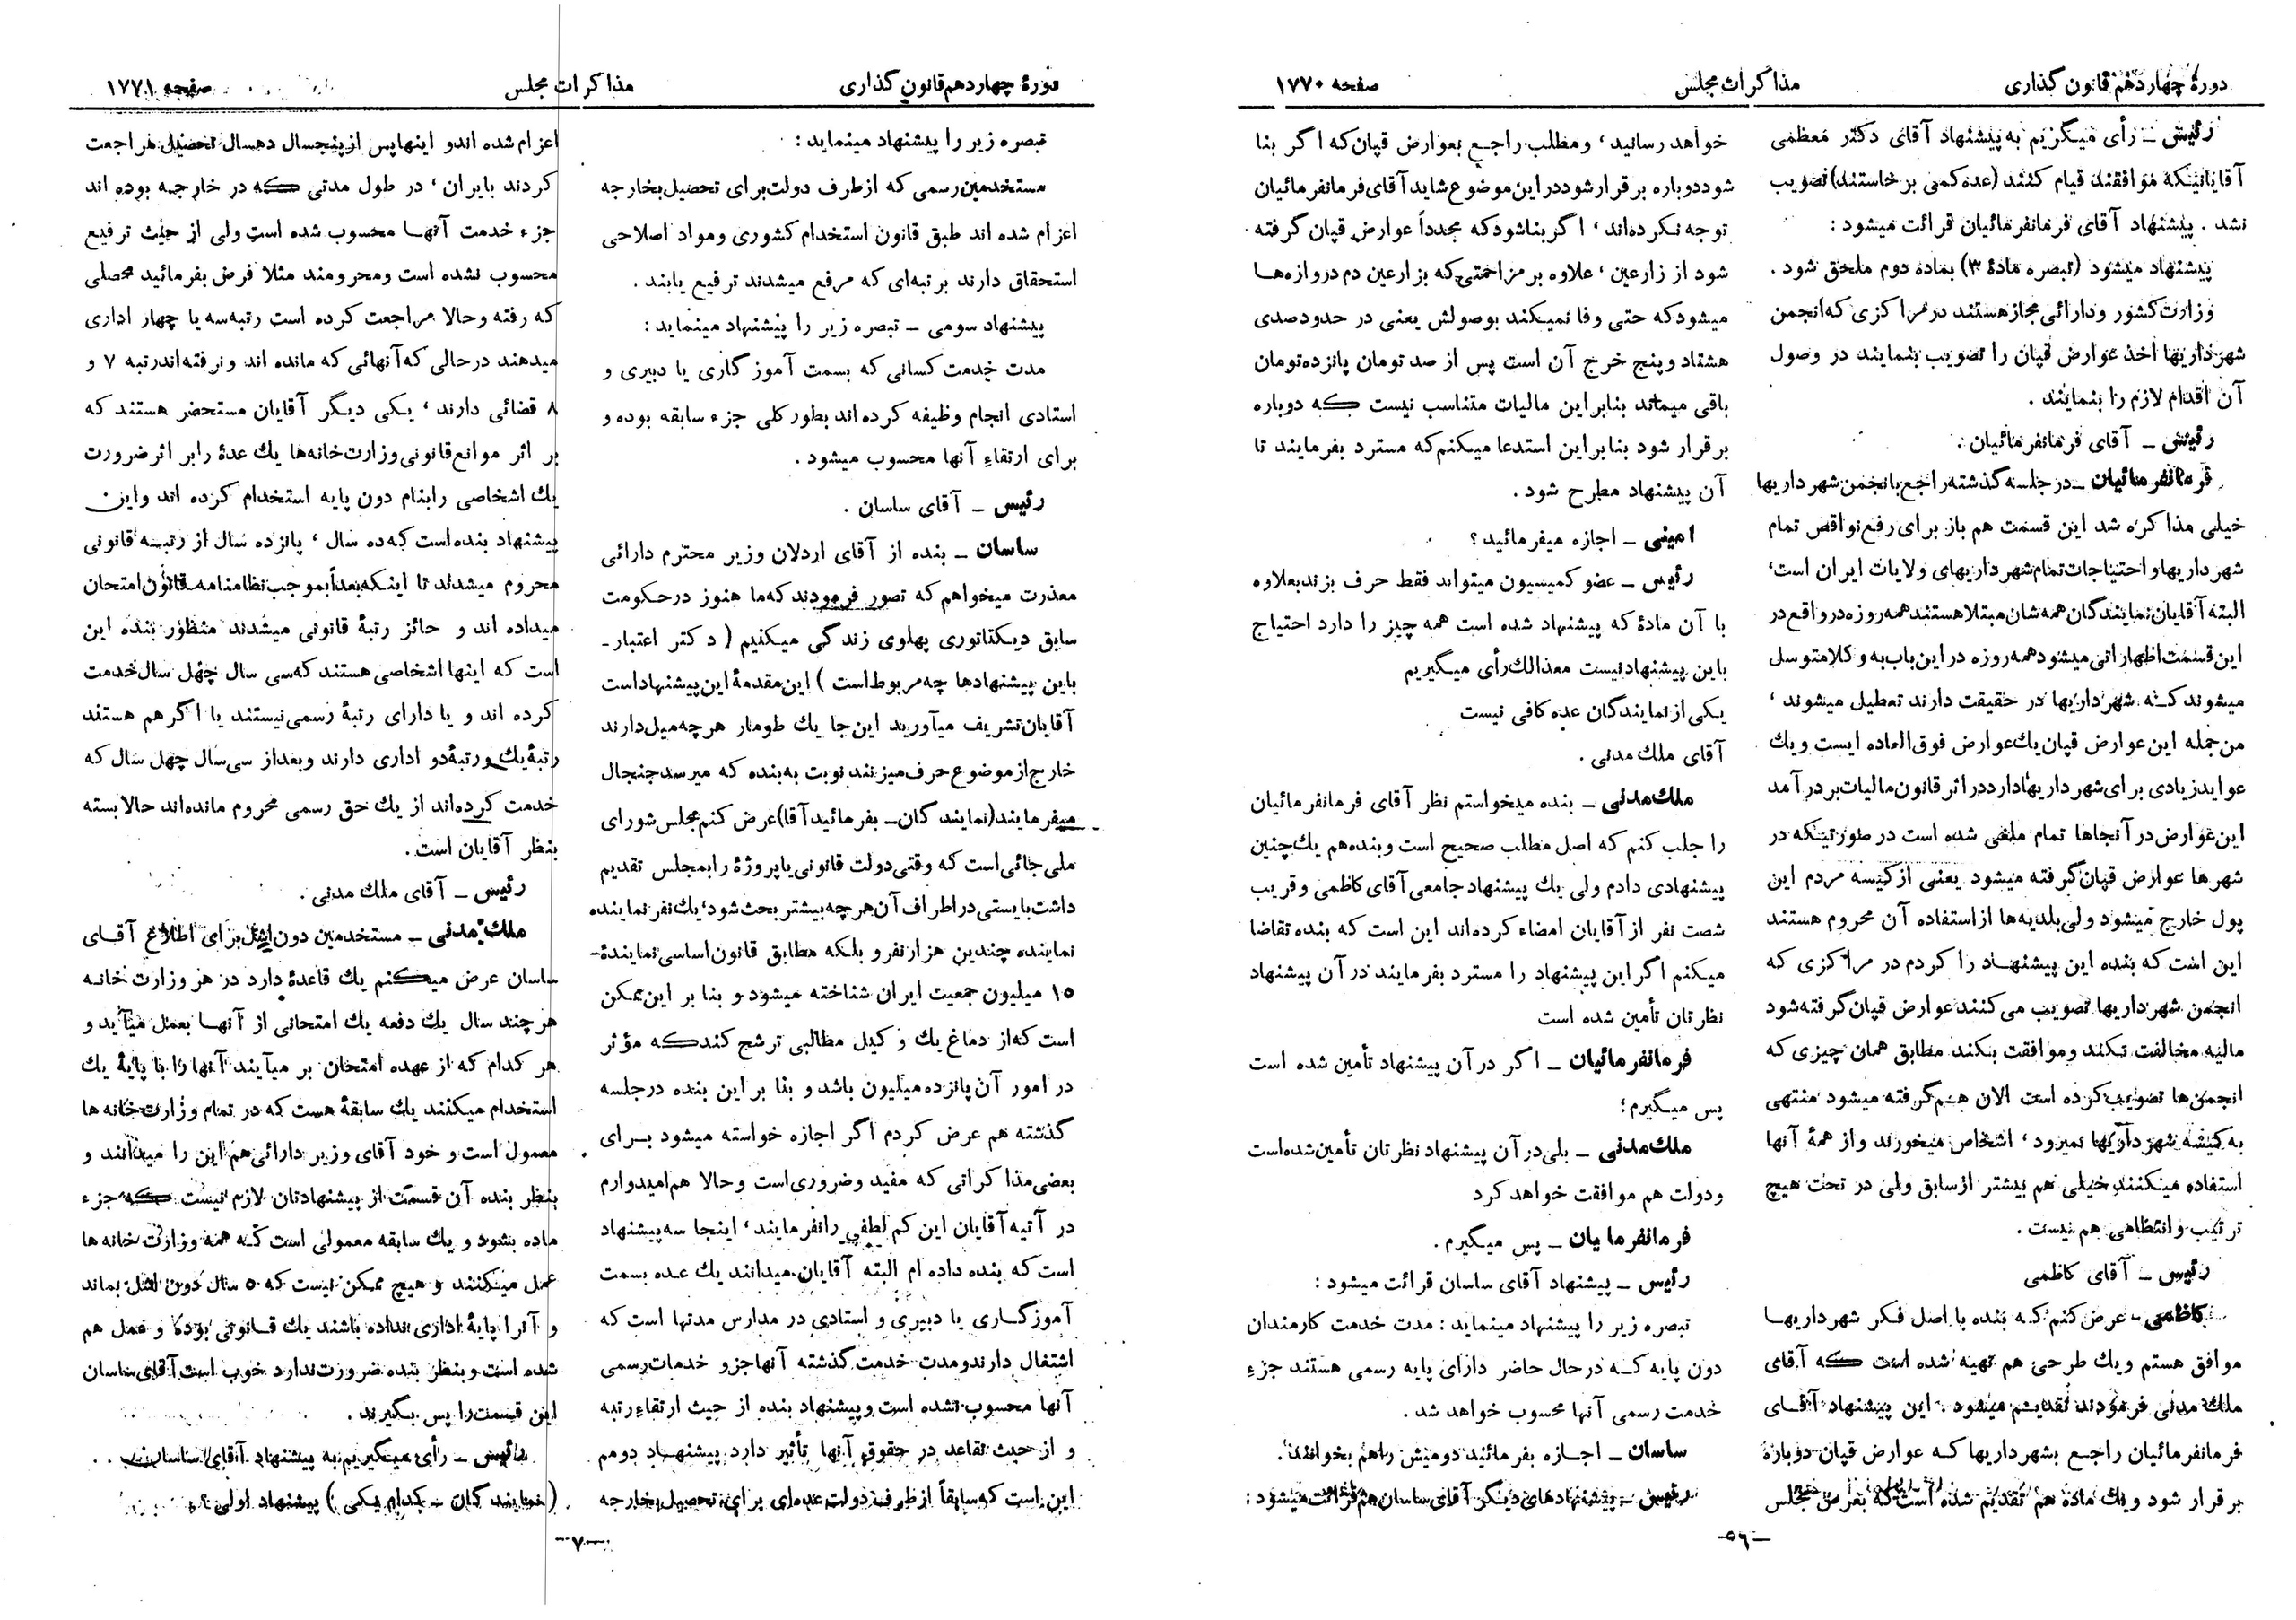 دورهٔ چهاردهم قانون گذاری
مذاکرات مجلس
صفحه ۱۷۷۰
رئیس ــ رأی میگیریم به پیشنهاد آقای دکتر معظمی
آقایانیکه موافقند قیام کنند (عده کمی برخاستند) تصویب
نشد . پیشنهاد آقای فرمانفرمائیان قرائت میشود :
پیشنهاد میشود (تبصره مادهٔ ۳) بماده دوم ملحق شود .
وزارت کشور و دارائی مجاز هستند در مراکزی که انجمن
شهرداریها اخذ عوارض قپان را تصویب بنمایند در وصول
آن اقدام لازم را بنمایند .
رئیس ــ آقای فرمانفرمائیان .
فرمانفرمائیان ــ در جلسه گذشته راجع بانجمن شهرداریها
خیلی مذاکره شد این قسمت هم باز برای رفع نواقص تمام
شهرداریها و احتیاجات تمام شهرداریهای ولایات ایران است،
البته آقایان نمایندگان همه شان مبتلا هستند همه روزه در واقع در
این قسمت اظهاراتی میشود همه روزه در این باب به وکلا متوسل
میشوند که شهرداریها در حقیقت دارند تعطیل میشوند ،
من جمله این عوارض قپان یك عوارض فوق العاده ایست و یك
عواید زیادی برای شهرداریها دارد در اثر قانون مالیات بر درآمد
این عوارض در آنجاها تمام ملغی شده است در صورتیکه در
شهرها عوارض قپان گرفته میشود یعنی از کیسه مردم این
پول خارج میشود ولی بلدیه ها از استفاده آن محروم هستند
این است که بنده این پیشنهاد را کردم در مراکزی که
انجمن شهرداریها تصویب می کنند عوارض قپان گرفته شود
مالیه مخالفت نکند و موافقت بکند مطابق همان چیزی که
انجمن ها تصویب کرده است الان هم گرفته میشود منتهی
به کیسه شهرداریها نمیرود ، اشخاص میخورند و از همهٔ آنها
استفاده میکنند خیلی هم بیشتر از سابق ولی در تحت هیچ
ترتیب و انتظامی هم نیست .
رئیس ــ آقای کاظمی
کاظمی ــ عرض کنم که بنده با اصل فکر شهرداریها
موافق هستم و یك طرحی هم تهیه شده است که آقای
ملك مدنی فرمودند تقدیم میشود . این پیشنهاد آقای
فرمانفرمائیان راجع بشهرداریها که عوارض قپان دوباره
برقرار شود و یك ماده هم تقدیم شده است که بعرض مجلس
خواهد رسانید ، و مطلب راجع بعوارض قپان که اگر بنا
شود دوباره برقرار شود در این موضوع شاید آقای فرمانفرمائیان
توجه نکرده اند ، اگر بنا شود که مجدداً عوارض قپان گرفته
شود از زارعین ، علاوه بر مزاحمتی که بزارعین دم دروازه ها
میشود که حتی وفا نمیکند بوصولش یعنی در حدود صدی
هشتاد و پنج خرج آن است پس از صد تومان پانزده تومان
باقی میماند بنابراین این مالیات متناسب نیست که دوباره
برقرار شود بنابراین استدعا میکنم که مسترد بفرمایند تا
آن پیشنهاد مطرح شود .
امینی ــ اجازه میفرمائید ؟
رئیس ــ عضو کمیسیون میتواند فقط حرف بزند بعلاوه
با آن مادهٔ که پیشنهاد شده است همه چیز را دارد احتیاج
باین پیشنهاد نیست معذالك رأی میگیریم
یکی از نمایندگان عده کافی نیست
آقای ملك مدنی .
ملك مدنی ــ بنده میخواستم نظر آقای فرمانفرمائیان
را جلب کنم که اصل مطلب صحیح است و بنده هم یك چنین
پیشنهادی دادم ولی یك پیشنهاد جامعی آقای کاظمی و قریب
شصت نفر از آقایان امضاء کرده اند این است که بنده تقاضا
میکنم اگر این پیشنهاد را مسترد بفرمایند در آن پیشنهاد
نظرتان تأمین شده است
فرمانفرمائیان ــ اگر در آن پیشنهاد تأمین شده است
پس میگیرم ؛
ملك مدنی ــ بلی در آن پیشنهاد نظرتان تأمین شده است
و دولت هم موافقت خواهد کرد
فرمانفرمایان ــ پس میگیرم .
رئیس ــ پیشنهاد آقای ساسان قرائت میشود :
تبصره زیر را پیشنهاد مینماید : مدت خدمت کارمندان
دون پایه که در حال حاضر دارای پایه رسمی هستند جزء
خدمت رسمی آنها محسوب خواهد شد .
ساسان ــ اجازه بفرمائید دومیش را هم بخوانند .
رئیس ــ پیشنهادهای دیگر آقای ساسان هم قرائت میشود :
ــ ۵۶ ــ
دورهٔ چهاردهم قانون گذاری
مذاکرات مجلس
صفحه ۱۷۷۱
تبصره زیر را پیشنهاد مینماید :
مستخدمین رسمی که از طرف دولت برای تحصیل بخارجه
اعزام شده اند طبق قانون استخدام کشوری و مواد اصلاحی
استحقاق دارند برتبه ای که مرفع میشدند ترفیع یابند .
پیشنهاد سومی ــ تبصره زیر را پیشنهاد مینماید :
مدت خدمت کسانی که بسمت آموزگاری یا دبیری و
استادی انجام وظیفه کرده اند بطور کلی جزء سابقه بوده و
برای ارتقاء آنها محسوب میشود .
رئیس ــ آقای ساسان .
ساسان ــ بنده از آقای اردلان وزیر محترم دارائی
معذرت میخواهم که تصور فرمودند که ما هنوز در حکومت
سابق دیکتاتوری پهلوی زندگی میکنیم ( دکتر اعتبار ــ
باین پیشنهادها چه مربوط است ) این مقدمهٔ این پیشنهاد است
آقایان تشریف میآورند این جا یك طومار هر چه میل دارند
خارج از موضوع حرف میزنند نوبت به بنده که میرسد جنجال
میفرمایند (نمایندگان ــ بفرمائید آقا) عرض کنم مجلس شورای
ملی جائی است که وقتی دولت قانونی یا پروژهٔ را بمجلس تقدیم
داشت بایستی در اطراف آن هر چه بیشتر بحث شود، یك نفر نماینده
نماینده چندین هزار نفر و بلکه مطابق قانون اساسی نمایندهٔ ــ
۱۵ میلیون جمعیت ایران شناخته میشود و بنا بر این ممکن
است که از دماغ یك وکیل مطالبی ترشح کند که مؤثر
در امور آن پانزده میلیون باشد و بنا بر این بنده در جلسه
گذشته هم عرض کردم اگر اجازه خواسته میشود برای
بعضی مذاکراتی که مفید و ضروری است و حالا هم امیدوارم
در آتیه آقایان این کم لطفی را نفرمایند ، اینجا سه پیشنهاد
است که بنده داده ام البته آقایان میدانند یك عده بسمت
آموزگاری یا دبیری و استادی در مدارس مدتها است که
اشتغال دارند و مدت خدمت گذشته آنها جزو خدمات رسمی
آنها محسوب نشده است و پیشنهاد بنده از حیث ارتقاء رتبه
و از حیث تقاعد در حقوق آنها تأثیر دارد پیشنهاد دومم
این است که سابقاً از طرف دولت عده ای برای تحصیل بخارجه
اعزام شده اند و اینها پس از پنجسال دهسال تحصیل مراجعت
کردند بایران ، در طول مدتی که در خارجه بوده اند
جزء خدمت آنها محسوب شده است ولی از حیث ترفیع
محسوب نشده است و محرومند مثلا فرض بفرمائید محصلی
که رفته و حالا مراجعت کرده است رتبه سه یا چهار اداری
میدهند در حالی که آنهائی که مانده اند و نرفته اند رتبه ۷ و
۸ قضائی دارند ، یکی دیگر آقایان مستحضر هستند که
بر اثر موانع قانونی وزارت خانه ها یك عدهٔ را بر اثر ضرورت
یك اشخاصی را بنام دون پایه استخدام کرده اند و این
پیشنهاد بنده است که ده سال ، پانزده سال از رتبه قانونی
محروم میشدند تا اینکه بعداً بموجب نظامنامه قانون امتحان
میداده اند و حائز رتبهٔ قانونی میشدند منظور بنده این
است که اینها اشخاصی هستند که سی سال چهل سال خدمت
کرده اند و یا دارای رتبهٔ رسمی نیستند یا اگر هم هستند
رتبهٔ یك و رتبهٔ دو اداری دارند و بعد از سی سال چهل سال که
خدمت کرده اند از یك حق رسمی محروم مانده اند حالا بسته
بنظر آقایان است .
رئیس ــ آقای ملك مدنی .
ملك مدنی ــ مستخدمین دون اشل برای اطلاع آقای
ساسان عرض میکنم یك قاعدهٔ دارد در هر وزارت خانه
هر چند سال یك دفعه یك امتحانی از آنها بعمل میآید و
هر کدام که از عهده امتحان بر میآیند آنها را با پایهٔ یك
استخدام میکنند یك سابقهٔ هست که در تمام وزارت خانه ها
معمول است و خود آقای وزیر دارائی هم این را میدانند و
بنظر بنده آن قسمت از پیشنهادتان لازم نیست که جزء
ماده بشود و یك سابقه معمولی است که همه وزارت خانه ها
عمل میکنند و هیچ ممکن نیست که ۵ سال دون اشل بماند
و آنرا پایهٔ اداری نداده باشند یك قانونی بوده و عمل هم
شده است و بنظر بنده ضرورت ندارد خوب است آقای ساسان
این قسمت را پس بگیرند .
رئیس ــ رأی میگیریم به پیشنهاد آقای ساسان
(نمایندگان ــ کدام یکی ) پیشنهاد اولی
ــ ۷ ــ